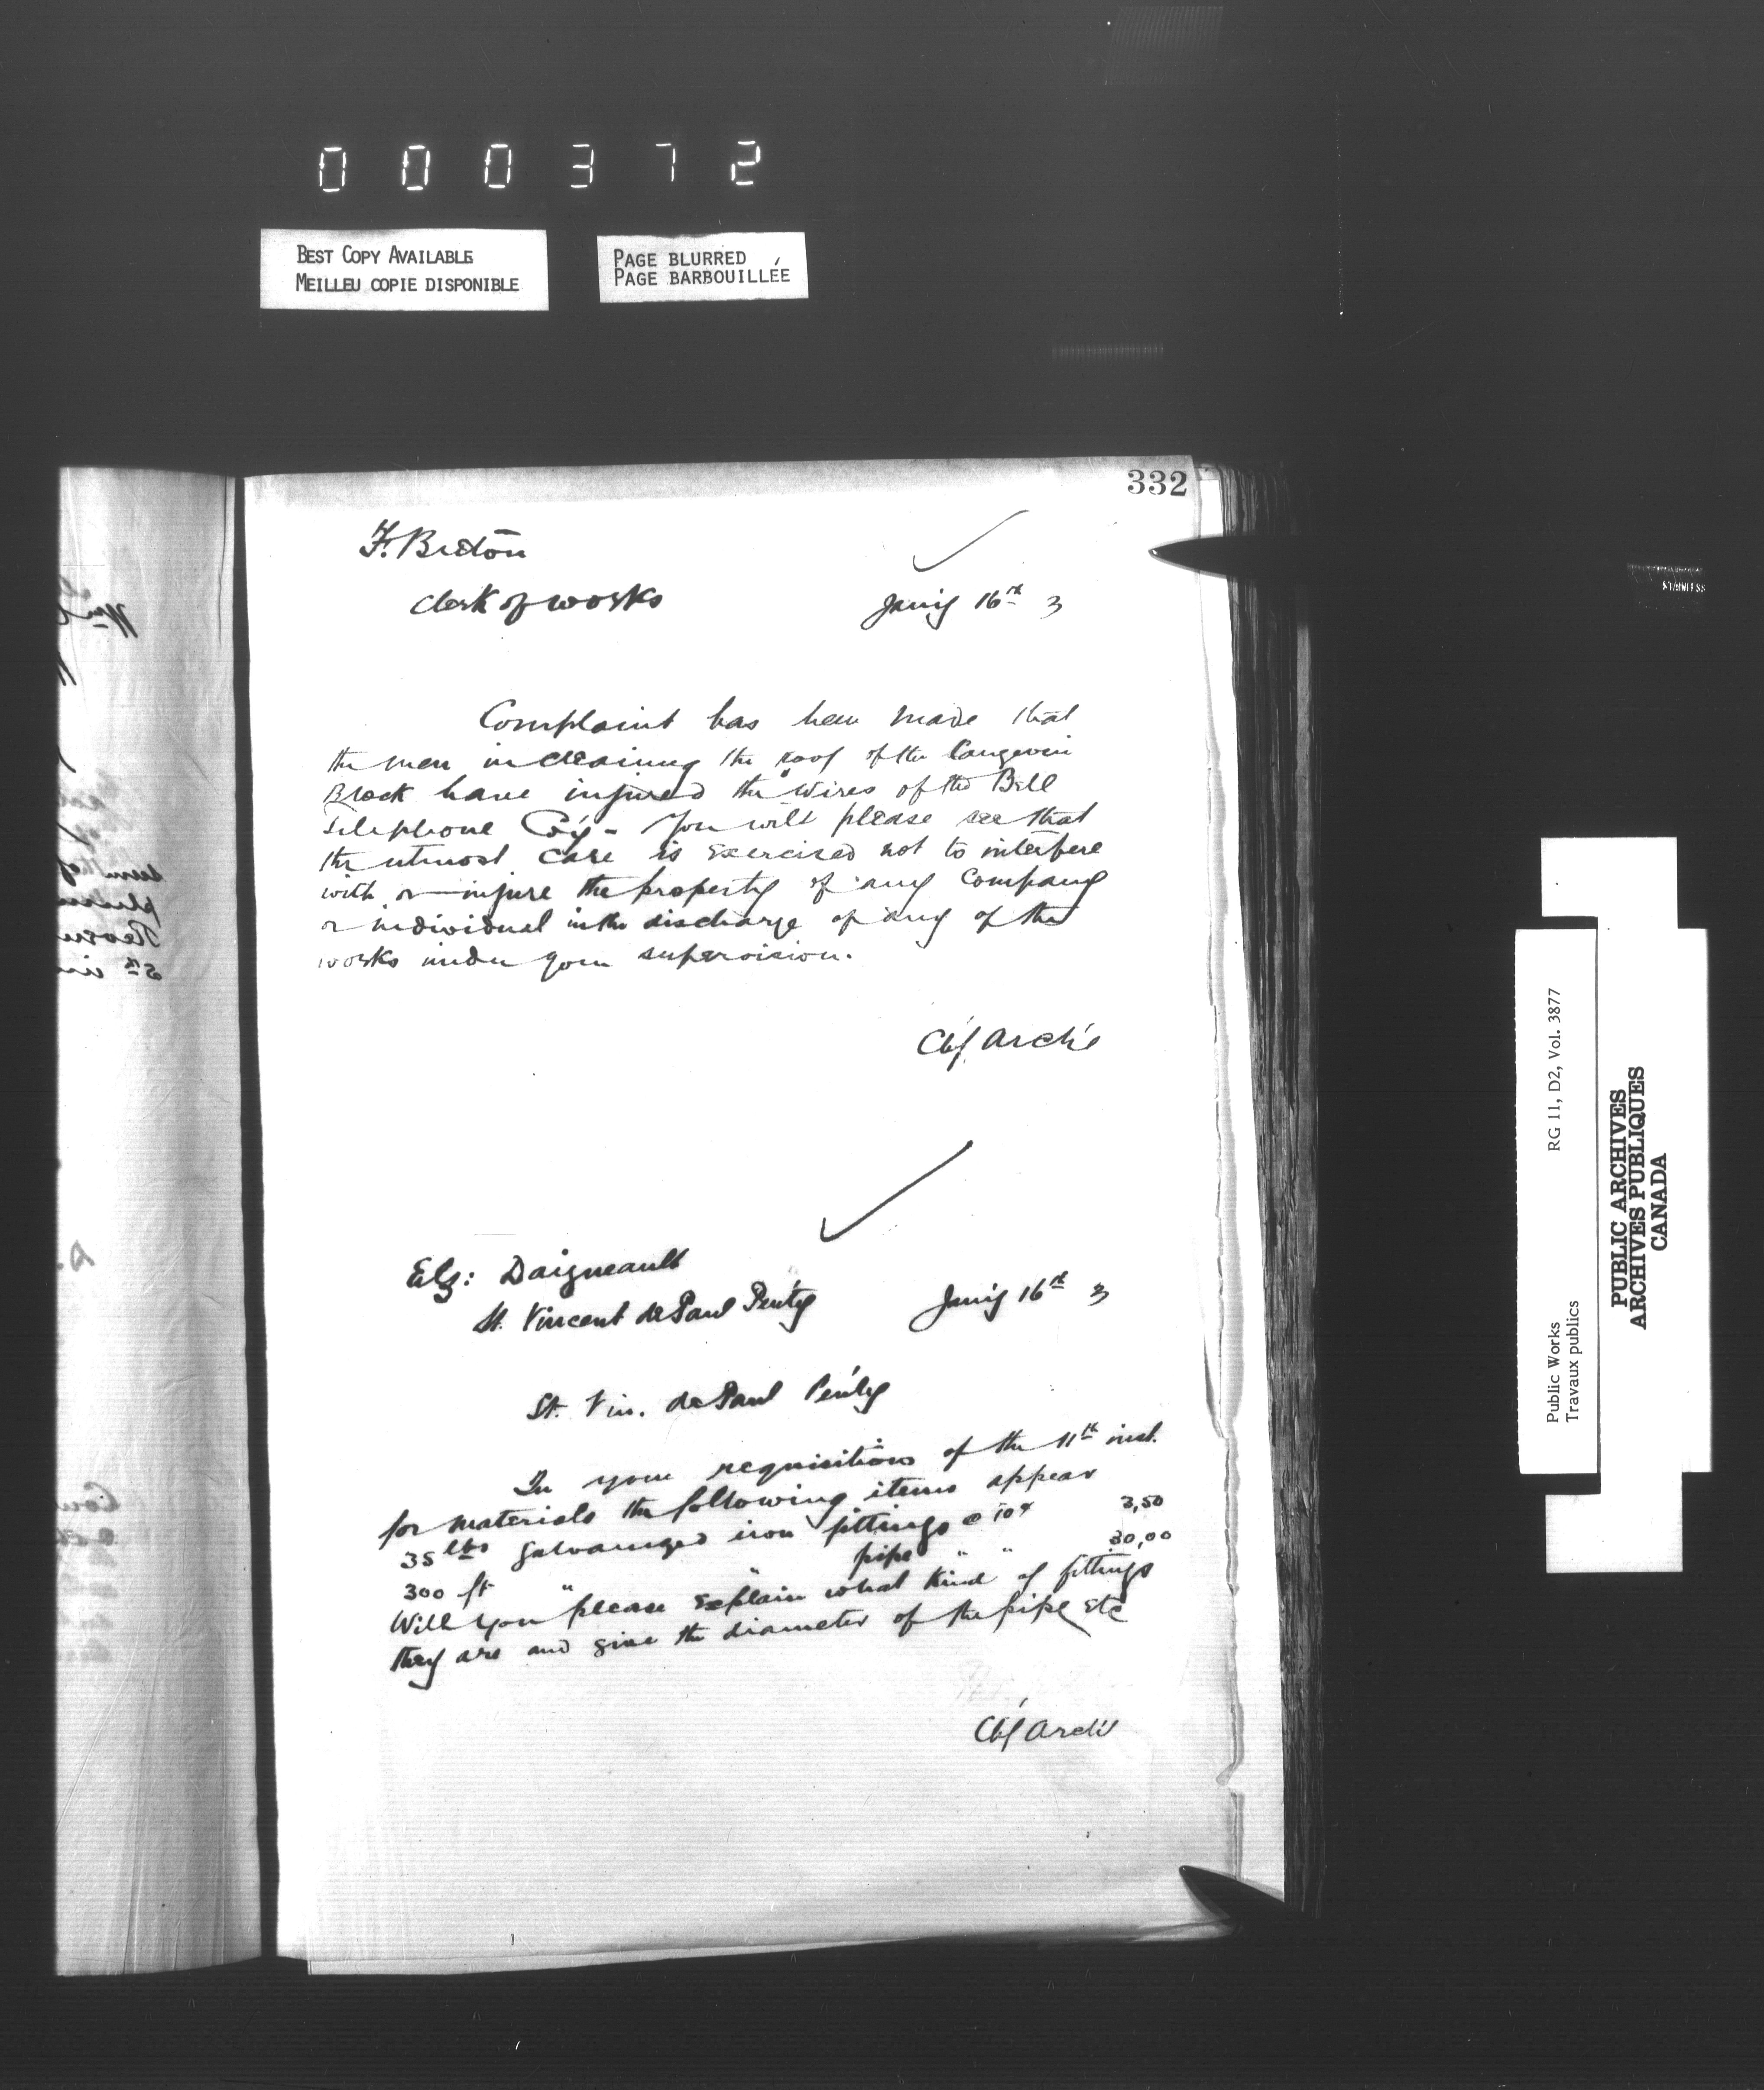 000372
BEST COPY AVAILABLE
MEILLEU COPIE DISPONIBLE
PAGE BLURRED
PAGE BARBOUILLÉE
332
F. Breton
Clerk of works
Jan'y 16th 3
Complaint has been made that
the men in cleaning the roof of the Langevin
Block have injured the wires of the Bell
Telephone Co'y - You will please see that
the utmost care is exercised not to interfere
with or injure the property of any Company
or individual in the discharge of any of the
works under your supervision.
Chf Arch't
Elz: Daigneault
St. Vincent de Paul Penty
Jan'y 16th 3
St. Vin. de Paul Pen'ty
In your requisitions of the 11th inst.
for materials the following items appear
35 lbs galvanized iron fittings @ 10¢ 3,50
300 ft " " pipe " " 30,00
Will you please explain what kind of fittings
they are and give the diameter of the pipe etc
Chf Arch't
RG 11, D2, Vol. 3877
Public Works
Travaux publics
PUBLIC ARCHIVES
ARCHIVES PUBLIQUES
CANADA